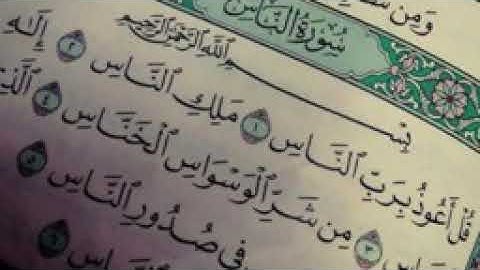 وَمِن
سُورَةُ النَّاسِ
بِسْمِ ٱللَّهِ ٱلرَّحْمَٰنِ ٱلرَّحِيمِ
قُلْ أَعُوذُ بِرَبِّ ٱلنَّاسِ ١ مَلِكِ ٱلنَّاسِ ٢ إِلَٰهِ
٣ مِن شَرِّ ٱلْوَسْوَاسِ ٱلْخَنَّاسِ ٤
فِى صُدُورِ ٱلنَّاسِ ٥
٦